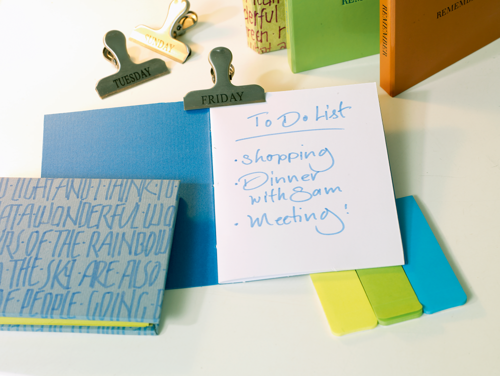 SUNDAY
TUESDAY
FRIDAY
REMEMBER
To Do List
· Shopping
· Dinner
with Sam
· Meeting!
LIGHT AND I THINK TO
WHAT A WONDERFUL WO
RS OF THE RAINBOW
THE SKY ARE ALSO
OF PEOPLE GOING